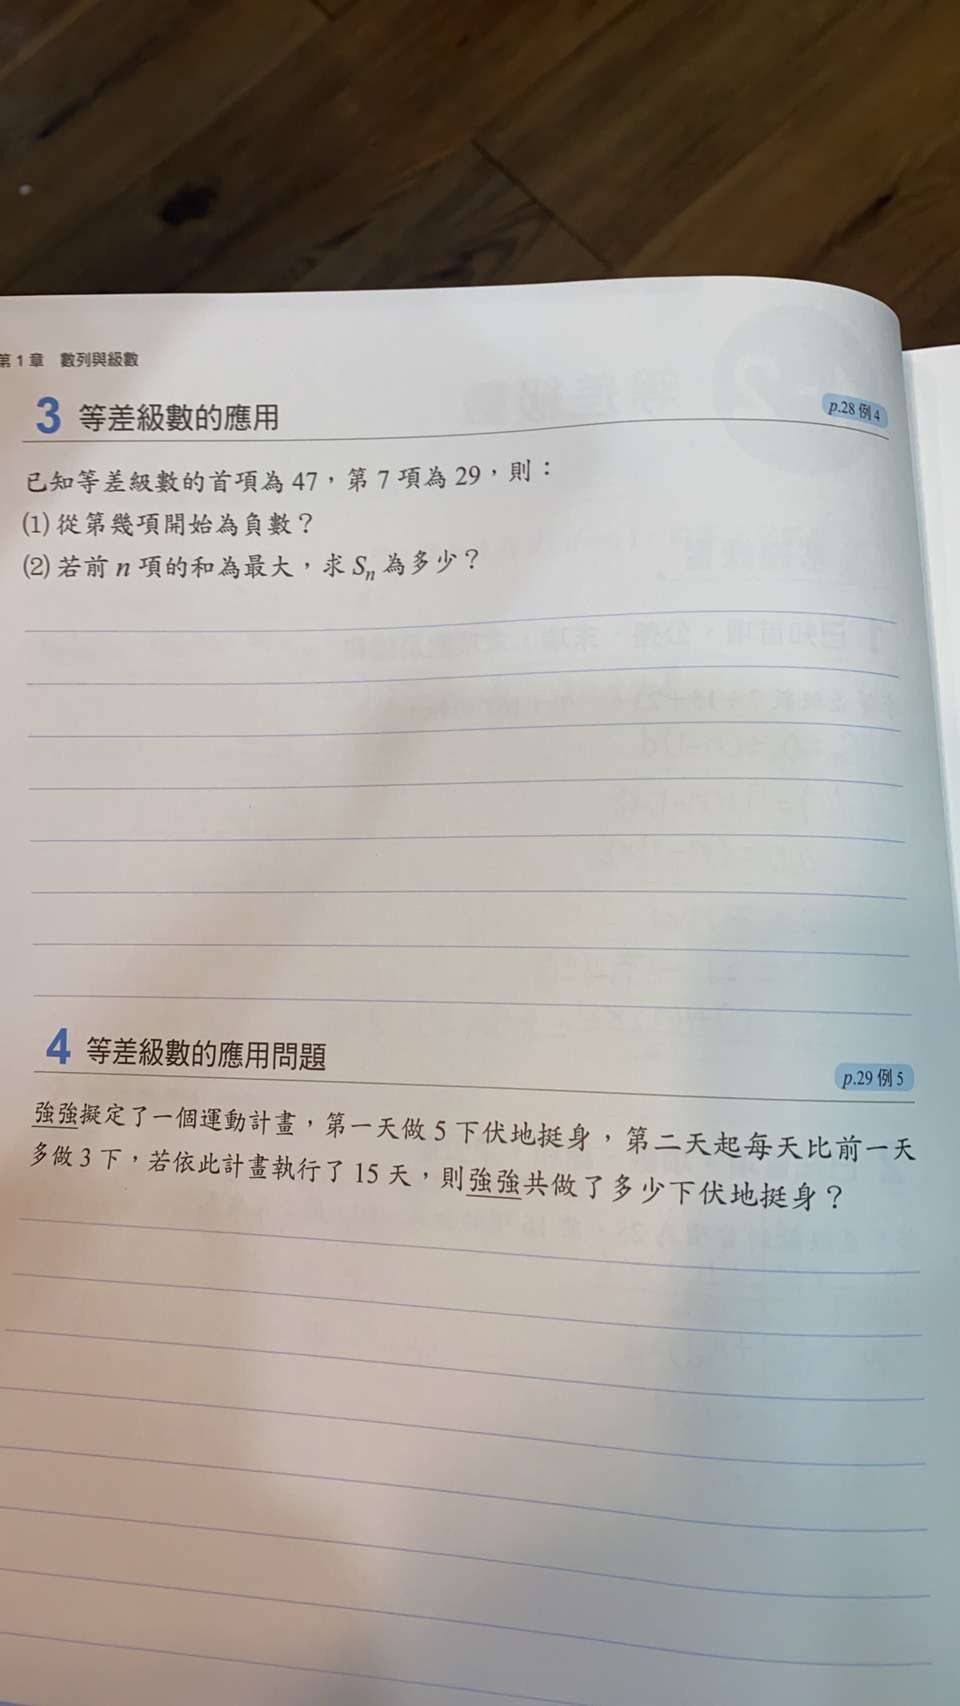 第1章 數列與級數
3 等差級數的應用
p.28 例4
已知等差級數的首項為 47，第 7 項為 29，則：
(1) 從第幾項開始為負數？
(2) 若前 n 項的和為最大，求 Sn 為多少？
4 等差級數的應用問題
p.29 例5
強強擬定了一個運動計畫，第一天做 5 下伏地挺身，第二天起每天比前一天
多做 3 下，若依此計畫執行了 15 天，則強強共做了多少下伏地挺身？